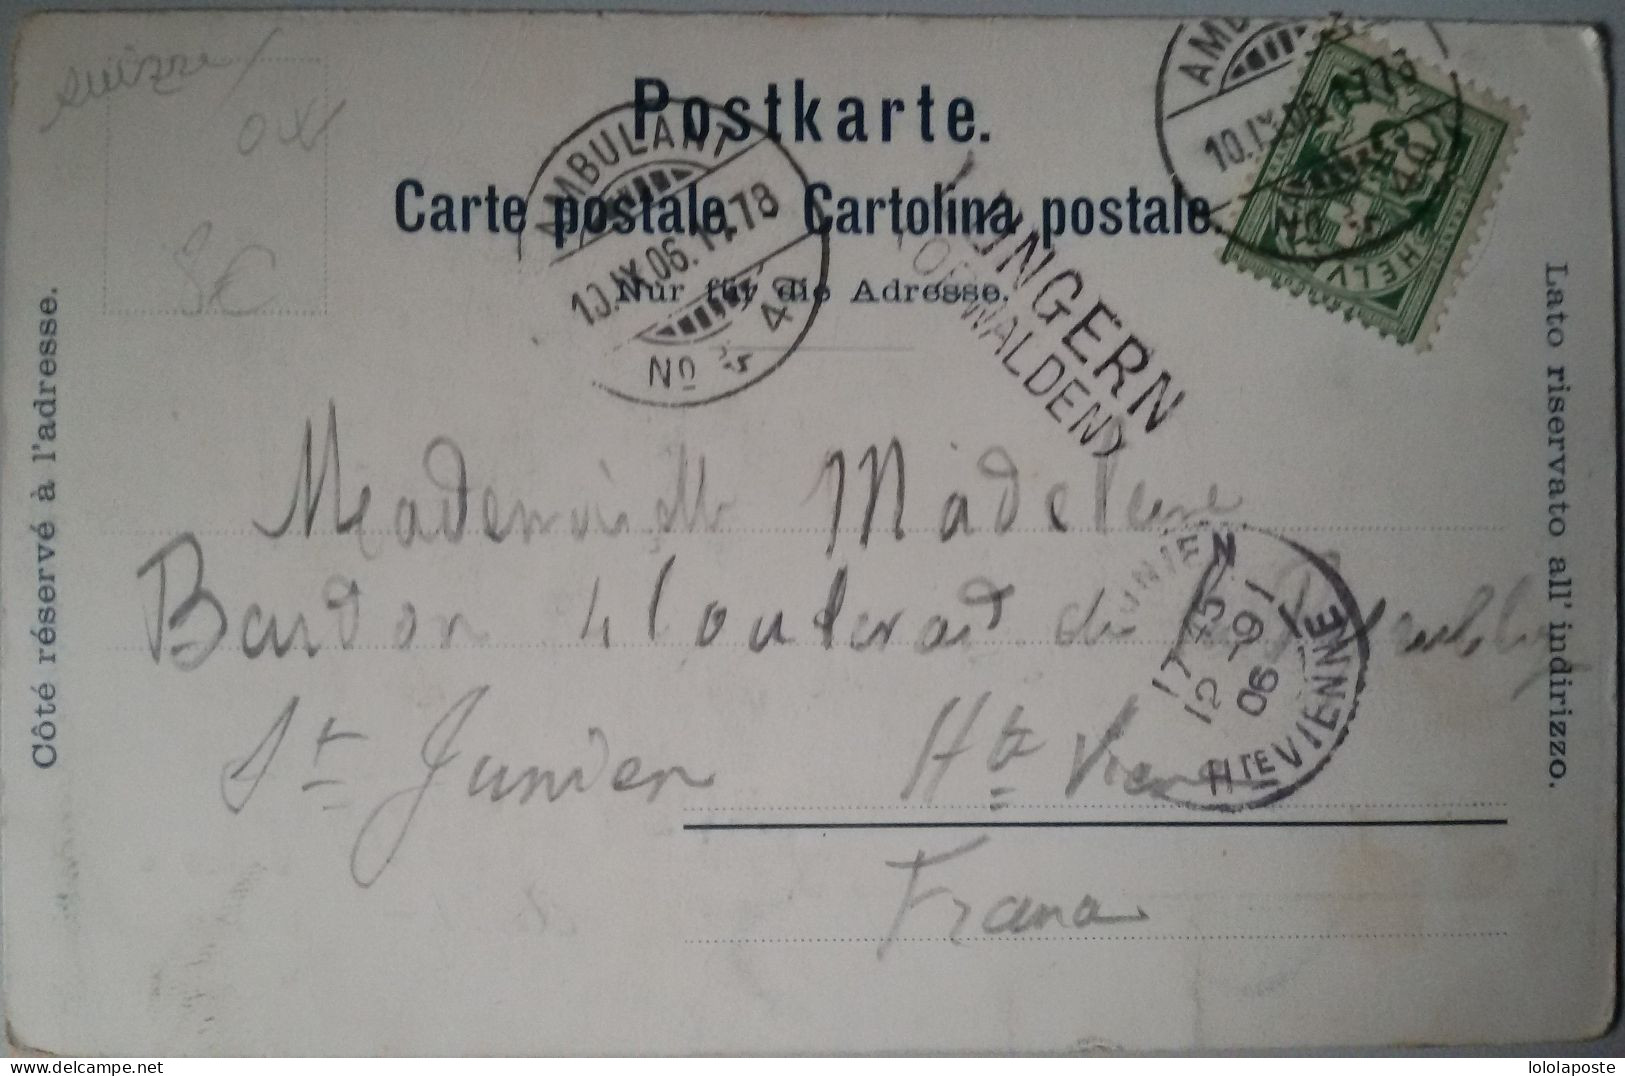 suisse/
8€
Postkarte.
Carte postale. Cartolina postale.
Nur für die Adresse.
Côté réservé à l'adresse.
Lato riservato all' indirizzo.
AMBULANT
10.IX.06.
No 5
AMBULANT
10.IX.06.
No 5
HELVE
LUNGERN
(OBWALDEN)
Mademoiselle Madeleine
Bardon 4 Boulevard de
St Junien Hte Vienne
France
JUNIEN
17 45
12 -9
06
HTE VIENNE
lololaposte